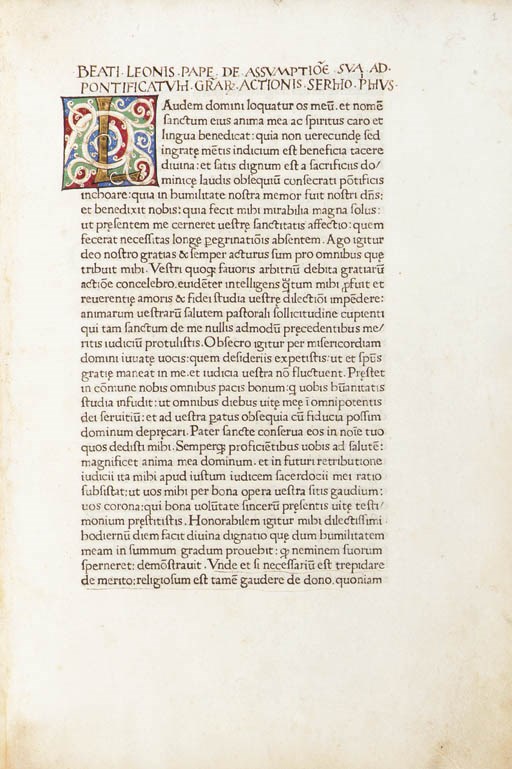 1
BEATI·LEONIS·PAPĘ·DE·ASSVMPTIOẼ·SVA·AD·
PONTIFICATVM·GRAꝜ·ACTIONIS·SERMO·PMVS·
LAudem domini loquatur os meũ.et nomẽ
sanctum eius anima mea ac spiritus caro et
lingua benedicat:quia non uerecundę sed
ingratę mẽtis indicium est beneficia tacere
diuina:et satis dignum est a sacrificiis do/
minicę laudis obsequiũ consecrati põtificis
inchoare:quia in humilitate nostra memor fuit nostri dñs:
et benedixit nobis:quia fecit mihi mirabilia magna solus:
ut pręsentem me cerneret uestrę sanctitatis affectio:quem
fecerat necessitas longę pegrinatiõis absentem. Ago igitur
deo nostro gratias & semper acturus sum pro omnibus quę
tribuit mihi. Vestri quoqꝫ fauoris arbitriũ debita gratiarũ
actiõe concelebro.euidẽter intelligens q̃tum mihi pfuit et
reuerentię amoris & fidei studia uestrę dilectiõi impẽdere:
animarum uestrarũ salutem pastorali sollicitudine cupienti
qui tam sanctum de me nullis admodũ pręcedentibus me/
ritis iudiciũ protulistis. Obsecro igitur per misericordiam
domini iuuate uocis:quem desideriis expetistis:ut et spũs
gratię maneat in me.et iudicia uestra nõ fluctuent. Pręstet
in cõmune nobis omnibus pacis bonum:q uobis hũanitatis
studia infudit:ut omnibus diebus uitę meę ĩ omnipotentis
dei seruitiũ:et ad uestra patus obsequia cũ fiducia possim
dominum depręcari. Pater sancte conserua eos in noĩe tuo
quos dedisti mihi. Semperqꝫ proficiẽtibus uobis ad salutẽ:
magnificet anima mea dominum.et in futuri retributione
iudicii ita mihi apud iustum iudicem sacerdocii mei ratio
subsistat:ut uos mihi per bona opera uestra sitis gaudium:
uos corona:qui bona uolũtate sincerũ pręsentis uitę testi/
monium pręstitistis. Honorabilem igitur mihi dilectissimi
hodiernũ diem facit diuina dignatio quę dum humilitatem
meam in summum gradum prouehit: ꝙ neminem suorum
sperneret:demõstrauit. Vnde et si necessariũ est trepidare
de merito:religiosum est tamẽ gaudere de dono.quoniam